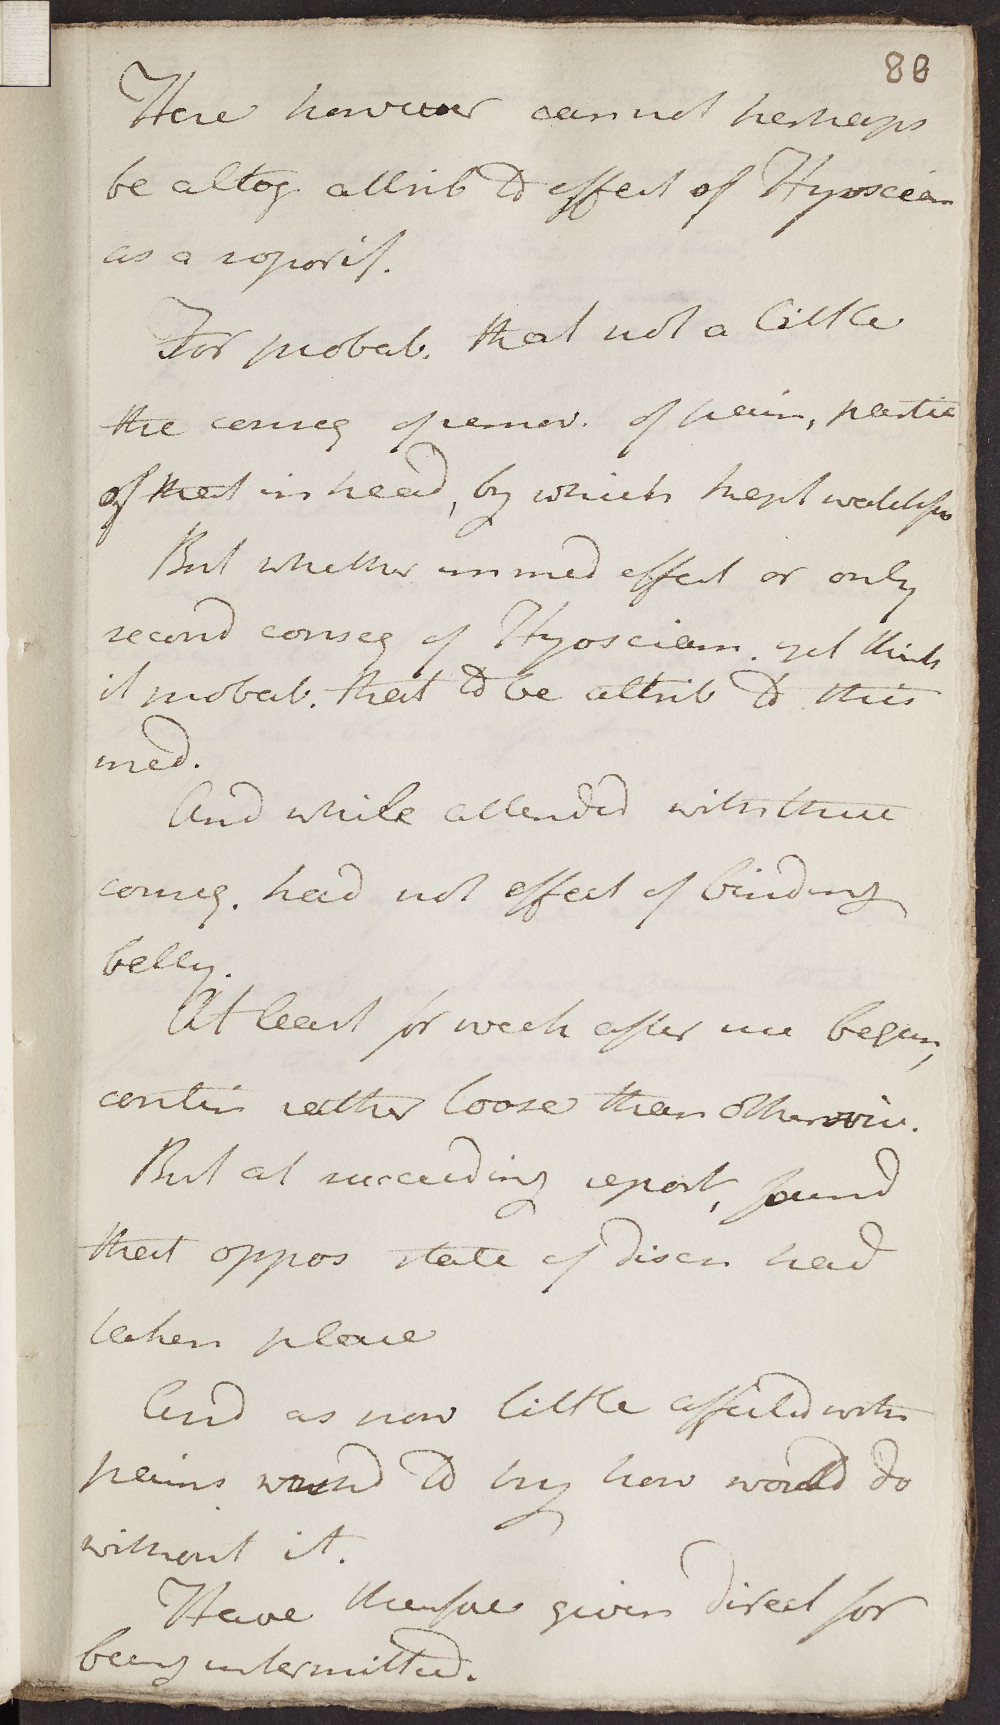 88
Here however cannot perhaps
be altog. attrib to effect of Hyosciam
as a soporif.
For probab. that not a little
the conseq of remov. of pain, partic
of that in head, by which kept watchful
But whether immed effect or only
second conseq of Hyosciam. yet think
it probab. that to be attrib to this
med.
And while attended with these
conseq. had not effect of binding
belly.
At least for week after use began,
contin rather loose than otherwise.
But at succeeding report, found
that oppos state of disch had
taken place
And as now little affected with
pains wishd to try how would do
without it.
Have therefore given direct for
being intermitted.